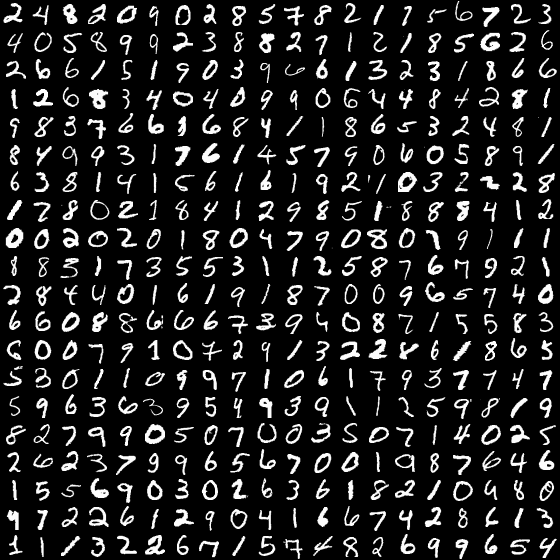 2 4 8 2 0 9 0 2 8 5 7 8 2 1 7 5 6 7 2 3
4 0 5 8 9 9 2 3 8 8 2 7 1 2 1 8 5 6 2 6
2 6 6 1 5 1 9 0 3 9 6 6 1 3 2 3 1 8 6 6
1 2 6 8 3 4 0 4 0 9 9 0 6 4 4 8 4 2 8 1
9 8 3 7 6 6 3 6 8 4 1 1 8 6 5 3 2 4 8 1
8 4 9 9 3 1 7 6 1 4 5 7 9 0 6 0 5 8 9 1
6 3 8 1 4 1 5 6 1 6 1 9 2 1 0 3 2 2 2 8
1 7 8 0 2 1 8 4 1 2 9 8 5 1 8 8 8 4 1 2
0 0 2 0 2 0 1 8 0 4 7 9 0 8 0 7 9 1 1 1
8 8 3 1 7 3 5 5 3 1 1 2 5 8 7 6 7 9 2 1
2 8 4 4 0 1 6 1 9 1 8 7 0 0 9 6 5 7 4 0
6 6 0 8 8 6 6 6 7 3 9 4 0 8 7 1 5 5 8 3
6 0 0 7 9 1 0 7 2 9 1 3 2 2 8 6 1 8 6 5
5 3 0 1 1 0 9 9 7 1 0 6 1 7 9 3 7 7 4 7
5 9 6 3 6 3 9 5 4 9 3 9 1 1 2 5 9 8 1 9
8 2 7 9 9 0 5 0 7 0 0 3 5 0 7 1 4 0 2 5
2 6 2 3 7 9 9 6 5 6 7 0 0 1 9 8 7 6 4 6
1 5 5 6 9 0 3 0 2 6 3 6 1 8 2 1 0 9 8 0
9 7 2 2 6 1 2 9 0 4 1 6 6 7 4 2 8 6 1 3
1 1 1 3 2 2 6 7 1 5 7 4 8 2 6 9 9 6 5 4